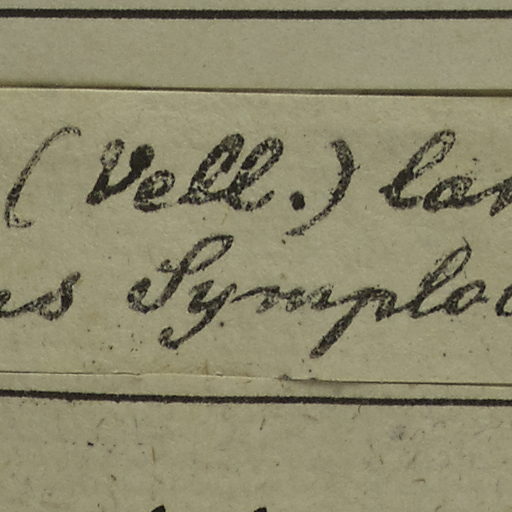 (Vell.) lan
us Symploc